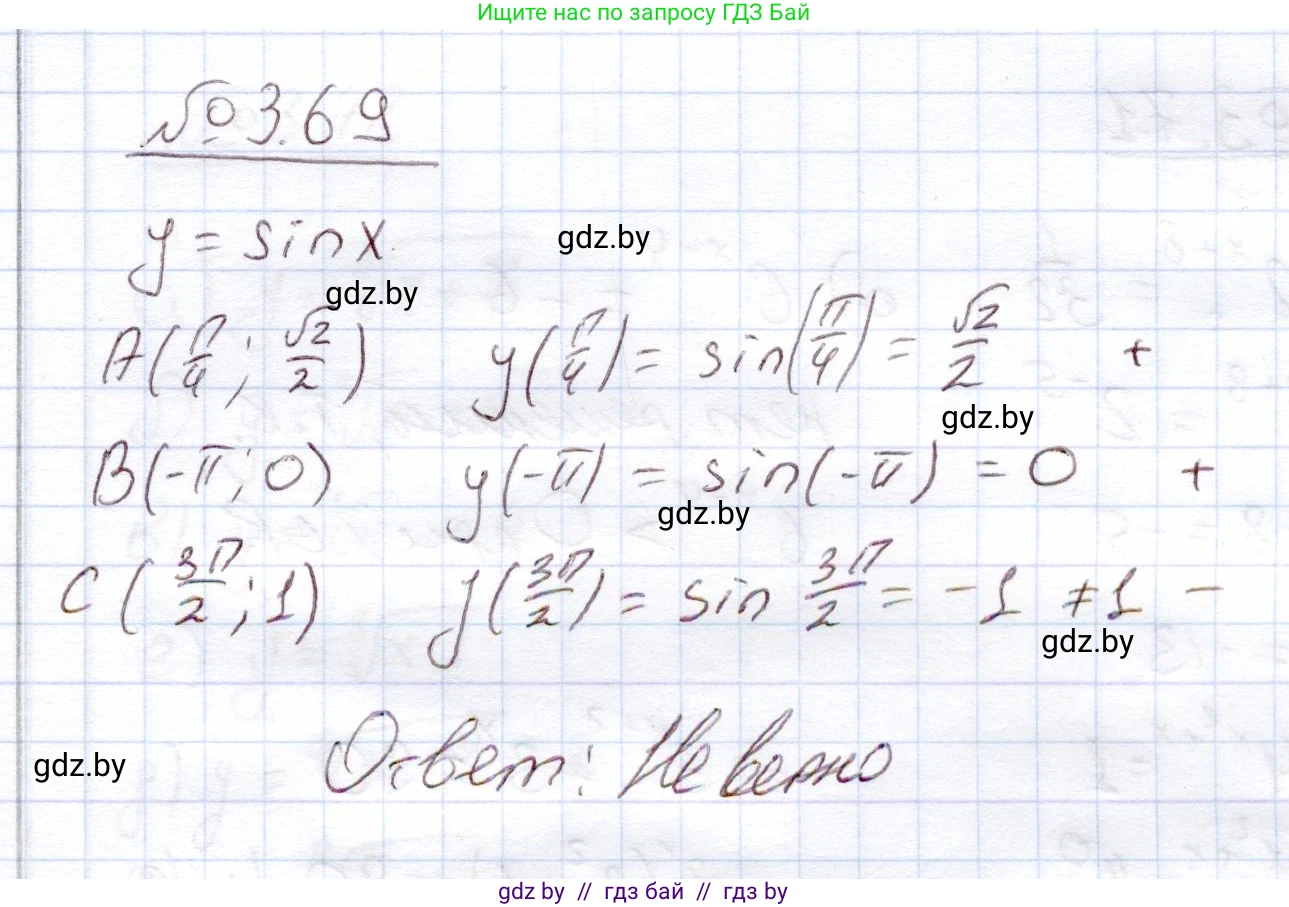 Ищите нас по запросу ГДЗ Бай
№ 3.69
y = sin x
gdz.by
gdz.by
A(π/4; √2/2) y(π/4) = sin(π/4) = √2/2 +
gdz.by
B(-π; 0) y(-π) = sin(-π) = 0 +
gdz.by
C(3π/2; 1) y(3π/2) = sin 3π/2 = -1 ≠ 1 -
gdz.by
Ответ: Неверно
gdz.by
gdz by // гдз бай // гдз by